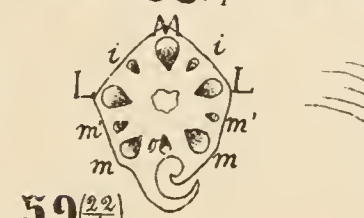 M
i i
L L
m' m'
m o m
59 (22/